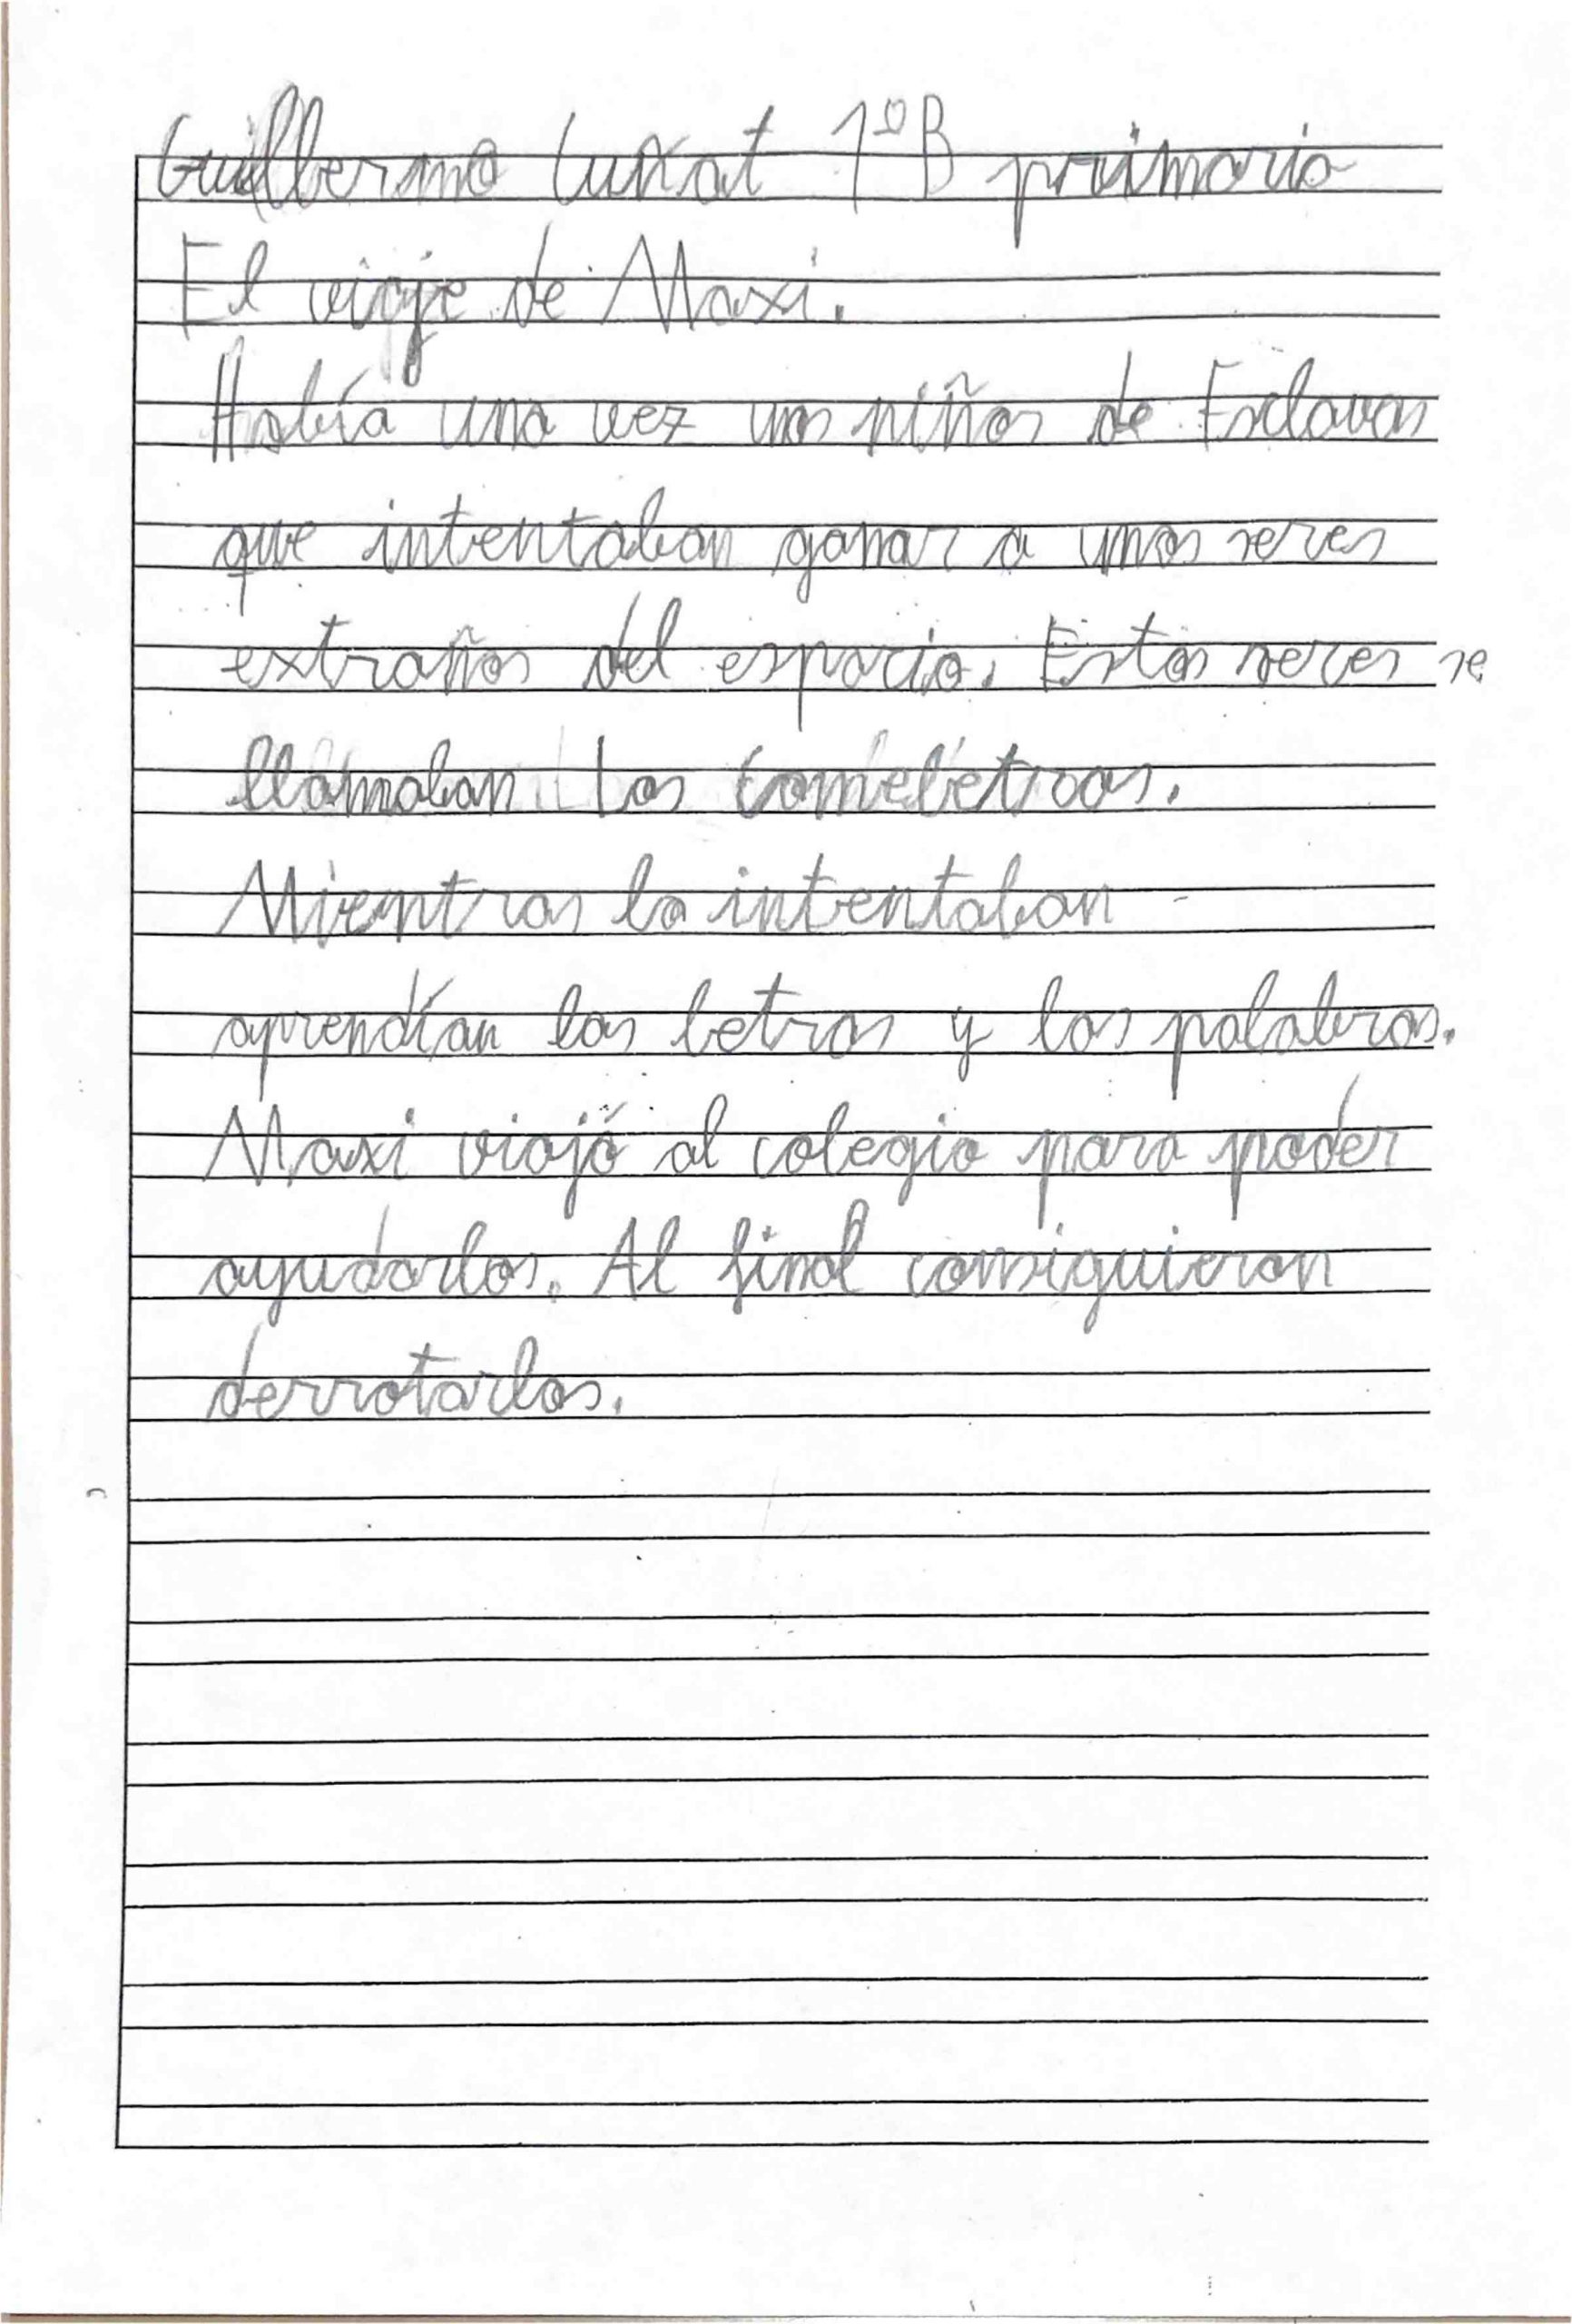 Guillermo Cuxat 1º B primaria
El viaje de Maxi.
Había una vez unos niños de Esclavas
que intentaban ganar a unos seres
extraños del espacio. Estos seres se
llamaban Los Comeletras.
Mientras lo intentaban
aprendían las letras y las palabras.
Maxi viajó al colegio para poder
ayudarlos. Al final consiguieron
derrotarlos.